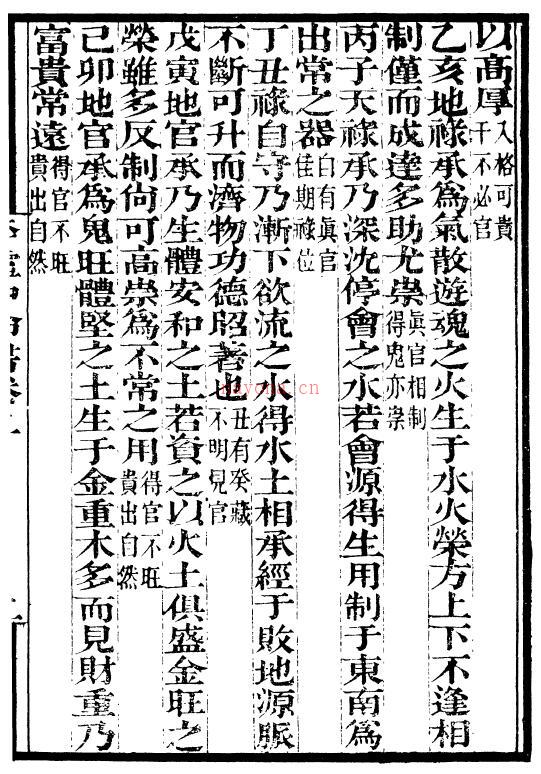 以高厚入格可貴干不必官
乙亥地祿承爲氣散遊魂之火生于水火榮方上下不逢相
制僅而成達多助尤崇眞官相制得鬼亦崇
丙子天祿承乃深沈停會之水若會源得生用制于東南爲
出常之器自有眞官佳期祿位
丁丑祿自守乃漸下欲流之水得水土相承經于敗地源脈
不斷可升而濟物功德昭著也丑有癸藏不明見官
戊寅地官承乃生體安和之土若資之以火土俱盛金旺之
榮雖多反制尙可高崇爲不常之用得官不旺貴出自然
己卯地官承爲鬼旺體堅之土生于金重木多而見財重乃
富貴常遠得官不旺貴出自然